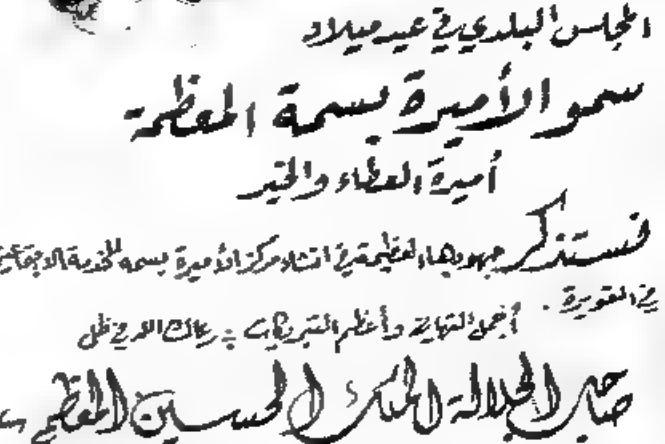 المجلس البلدي في عيد ميلاد
سمو الأميرة بسمة المعظمة
أميرة العطاء والخير
فنستذكر جهودها العظيمة في انشاء مركز الأميرة بسمة للخدمة الاجتماعية
في القويرة .
أجمل التهاني وأعظم التبريكات رعاك الله في ظل
صاحب الجلالة الملك الحسين المعظم